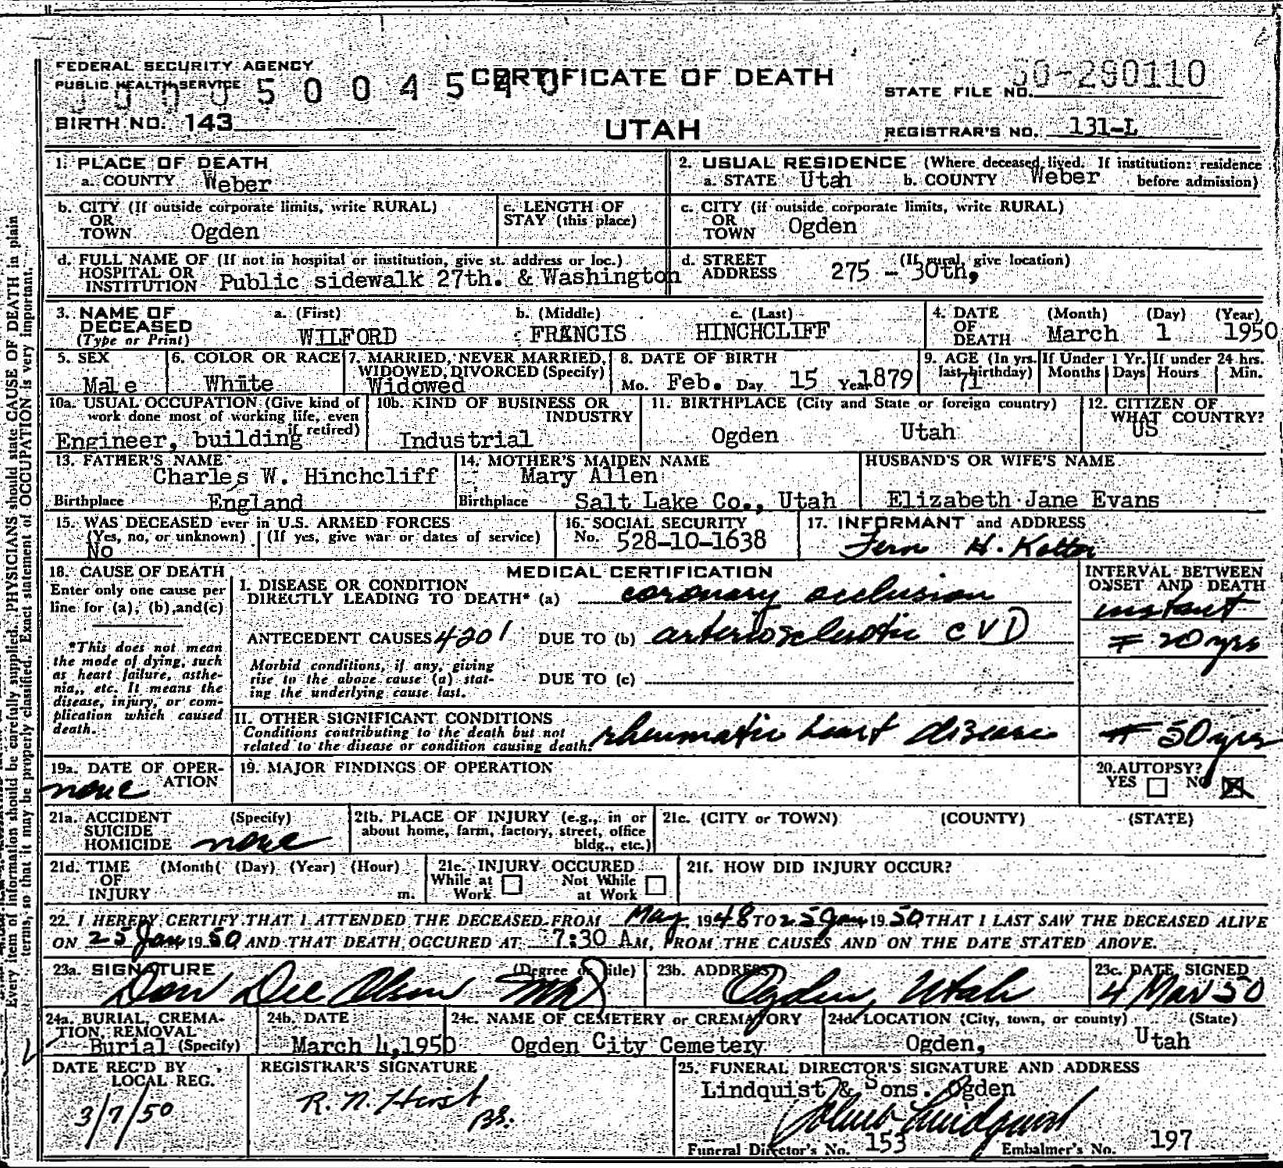 FEDERAL SECURITY AGENCY
PUBLIC HEALTH SERVICE
CERTIFICATE OF DEATH
UTAH
STATE FILE NO. 50-290110
BIRTH NO. 143
REGISTRAR'S NO. 131-L
1. PLACE OF DEATH
a. COUNTY Weber
2. USUAL RESIDENCE (Where deceased lived. If institution: residence before admission)
a. STATE Utah b. COUNTY Weber
b. CITY (If outside corporate limits, write RURAL)
OR
TOWN Ogden
c. LENGTH OF
STAY (this place)
c. CITY (if outside corporate limits, write RURAL)
OR
TOWN Ogden
d. FULL NAME OF (If not in hospital or institution, give st. address or loc.)
HOSPITAL OR
INSTITUTION Public sidewalk 27th. & Washington
d. STREET (If rural, give location)
ADDRESS 275 - 30th,
3. NAME OF
DECEASED
(Type or Print)
a. (First) WILFORD
b. (Middle) FRANCIS
c. (Last) HINCHCLIFF
4. DATE
OF
DEATH
(Month) (Day) (Year)
March 1 1950
5. SEX
Male
6. COLOR OR RACE
White
7. MARRIED, NEVER MARRIED,
WIDOWED, DIVORCED (Specify)
Widowed
8. DATE OF BIRTH
Mo. Feb. Day 15 Year 1879
9. AGE (In yrs.
last birthday)
71
If Under 1 Yr.
Months Days
If under 24 hrs.
Hours Min.
10a. USUAL OCCUPATION (Give kind of
work done most of working life, even
if retired)
Engineer, building
10b. KIND OF BUSINESS OR
INDUSTRY
Industrial
11. BIRTHPLACE (City and State or foreign country)
Ogden Utah
12. CITIZEN OF
WHAT COUNTRY?
US
13. FATHER'S NAME
Charles W. Hinchcliff
Birthplace England
14. MOTHER'S MAIDEN NAME
Mary Allen
Birthplace Salt Lake Co., Utah
HUSBAND'S OR WIFE'S NAME
Elizabeth Jane Evans
15. WAS DECEASED ever in U.S. ARMED FORCES
(Yes, no, or unknown) (If yes, give war or dates of service)
No
16. SOCIAL SECURITY
No. 528-10-1638
17. INFORMANT and ADDRESS
Fern H. Kotter
18. CAUSE OF DEATH
Enter only one cause per
line for (a), (b), and (c)
*This does not mean
the mode of dying, such
as heart failure, asthe-
nia, etc. It means the
disease, injury, or com-
plication which caused
death.
MEDICAL CERTIFICATION
I. DISEASE OR CONDITION
DIRECTLY LEADING TO DEATH* (a) coronary occlusion
ANTECEDENT CAUSES 4201 DUE TO (b) arteriosclerotic CVD
Morbid conditions, if any, giving
rise to the above cause (a) stat-
ing the underlying cause last.
DUE TO (c)
INTERVAL BETWEEN
ONSET AND DEATH
instant
20 yrs
II. OTHER SIGNIFICANT CONDITIONS
Conditions contributing to the death but not
related to the disease or condition causing death.
rheumatic heart disease
50 yrs
19a. DATE OF OPER-
ATION
none
19. MAJOR FINDINGS OF OPERATION
20. AUTOPSY?
YES NO
21a. ACCIDENT (Specify)
SUICIDE
HOMICIDE none
21b. PLACE OF INJURY (e.g., in or
about home, farm, factory, street, office
bldg., etc.)
21c. (CITY or TOWN) (COUNTY) (STATE)
21d. TIME (Month) (Day) (Year) (Hour)
OF
INJURY m.
21e. INJURY OCCURED
While at Work Not While at Work
21f. HOW DID INJURY OCCUR?
22. I HEREBY CERTIFY THAT I ATTENDED THE DECEASED FROM May 1948 TO 25 Jan 1950 THAT I LAST SAW THE DECEASED ALIVE
ON 25 Jan 1950 AND THAT DEATH OCCURED AT 7:30 AM, FROM THE CAUSES AND ON THE DATE STATED ABOVE.
23a. SIGNATURE (Degree or title)
Don Dee Olson MD
23b. ADDRESS
Ogden, Utah
23c. DATE SIGNED
4 Mar 50
24a. BURIAL, CREMA-
TION, REMOVAL
Burial (Specify)
24b. DATE
March 4, 1950
24c. NAME OF CEMETERY or CREMATORY
Ogden City Cemetery
24d. LOCATION (City, town, or county) (State)
Ogden, Utah
DATE REC'D BY
LOCAL REG.
3/7/50
REGISTRAR'S SIGNATURE
R. N. Hirst
25. FUNERAL DIRECTOR'S SIGNATURE AND ADDRESS
Lindquist & Sons. Ogden
John Lindquist
Funeral Director's No. 153 Embalmer's No. 197
Every item of information should be carefully supplied. PHYSICIANS should state CAUSE OF DEATH in plain
terms, so that it may be properly classified. Exact statement of OCCUPATION is very important.